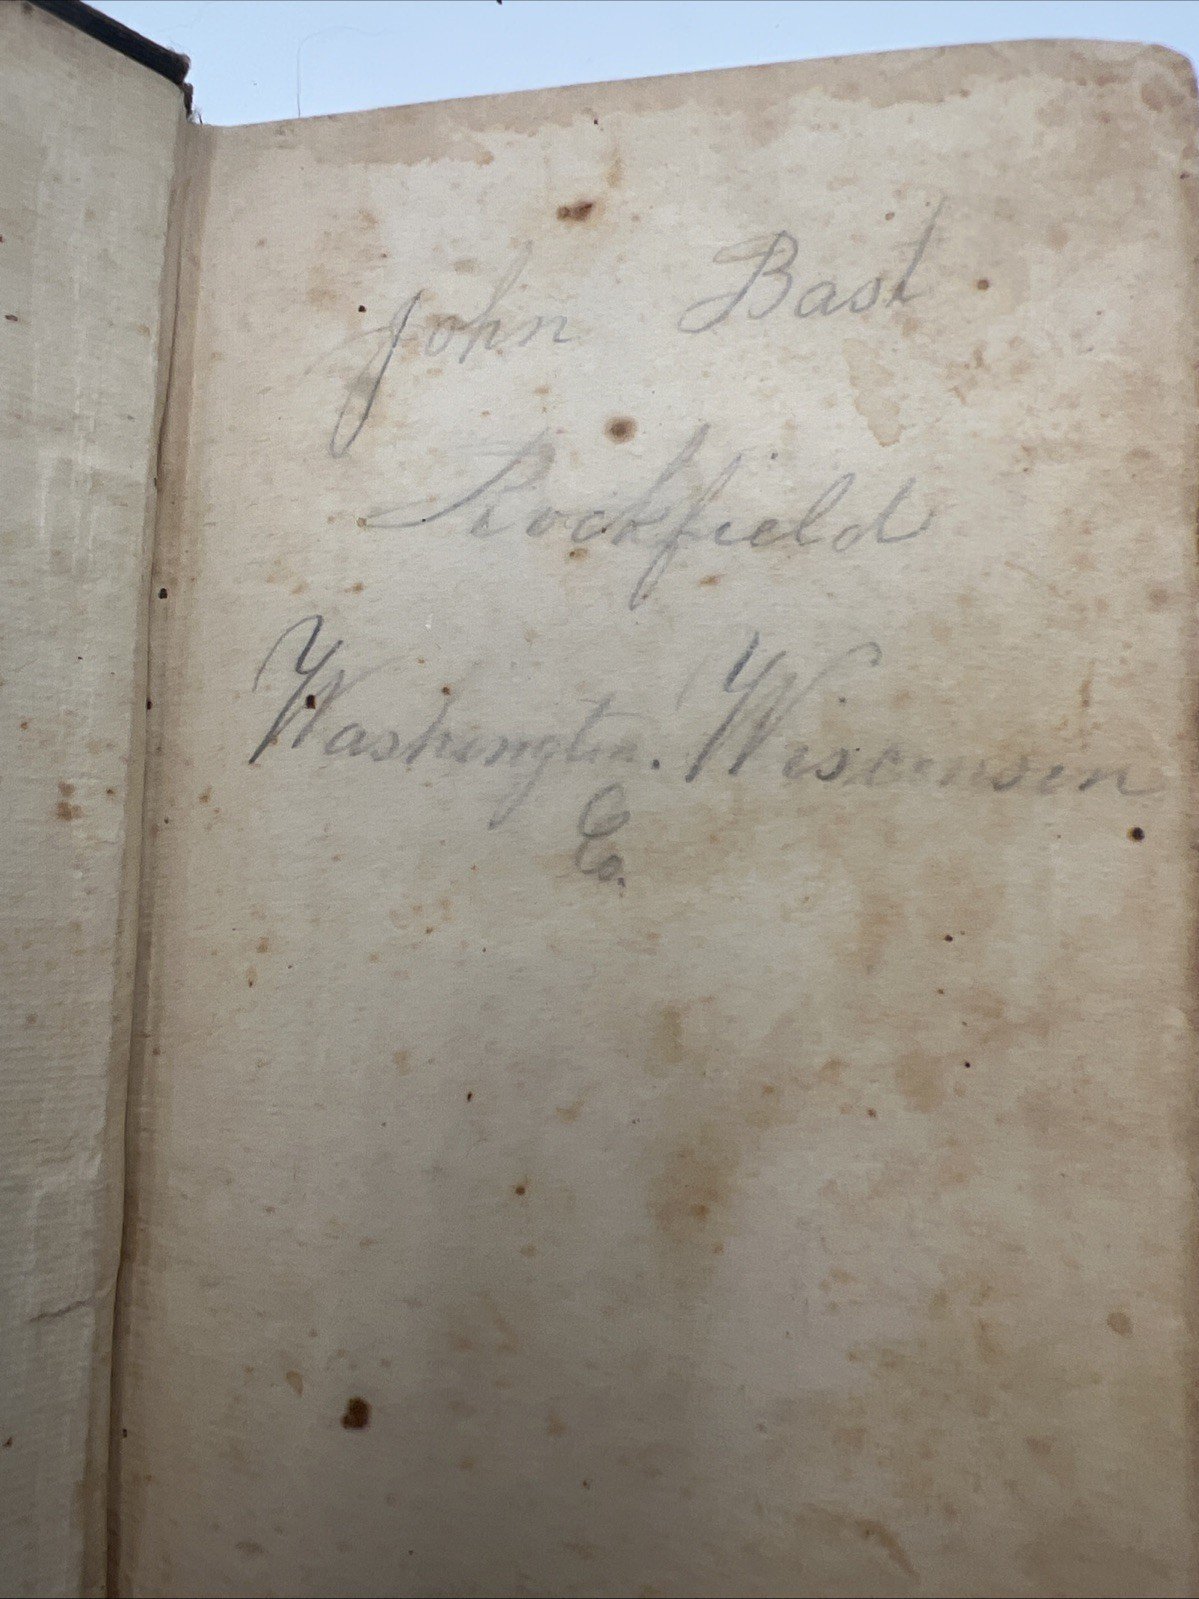 John Bast
Rockfield
Washington. Wisconsin
Co.